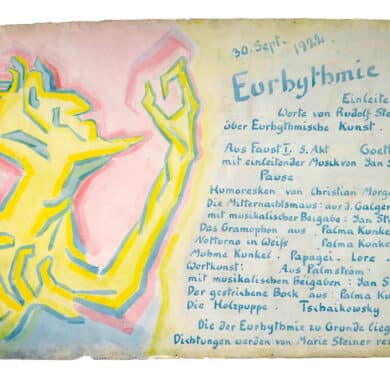 30. Sept. 1922.
Eurhythmie
Einleite
Worte von Rudolf Ste
über Eurhythmische Kunst
Aus Faust I, 5. Akt Goeth
mit einleitender Musik von Jan S
Pause
Humoresken von Christian Morg
Die Mitternachtsmaus: aus d. Galger
mit musikalischer Beigabe: Jan St
Das Gramophon aus Palma Kunke
Notturno in Weiss Palma Kunke
Muhme Kunkel. Papagei. Lore
Wortkunst: Aus Palmström.
mit musikalischen Beigaben: Jan S
Der gestrichene Bock aus: Palma K
Die Holzpuppe. Tschaikowsky
Die der Eurhythmie zu Grunde lieg
Dichtungen werden von Marie Steiner re